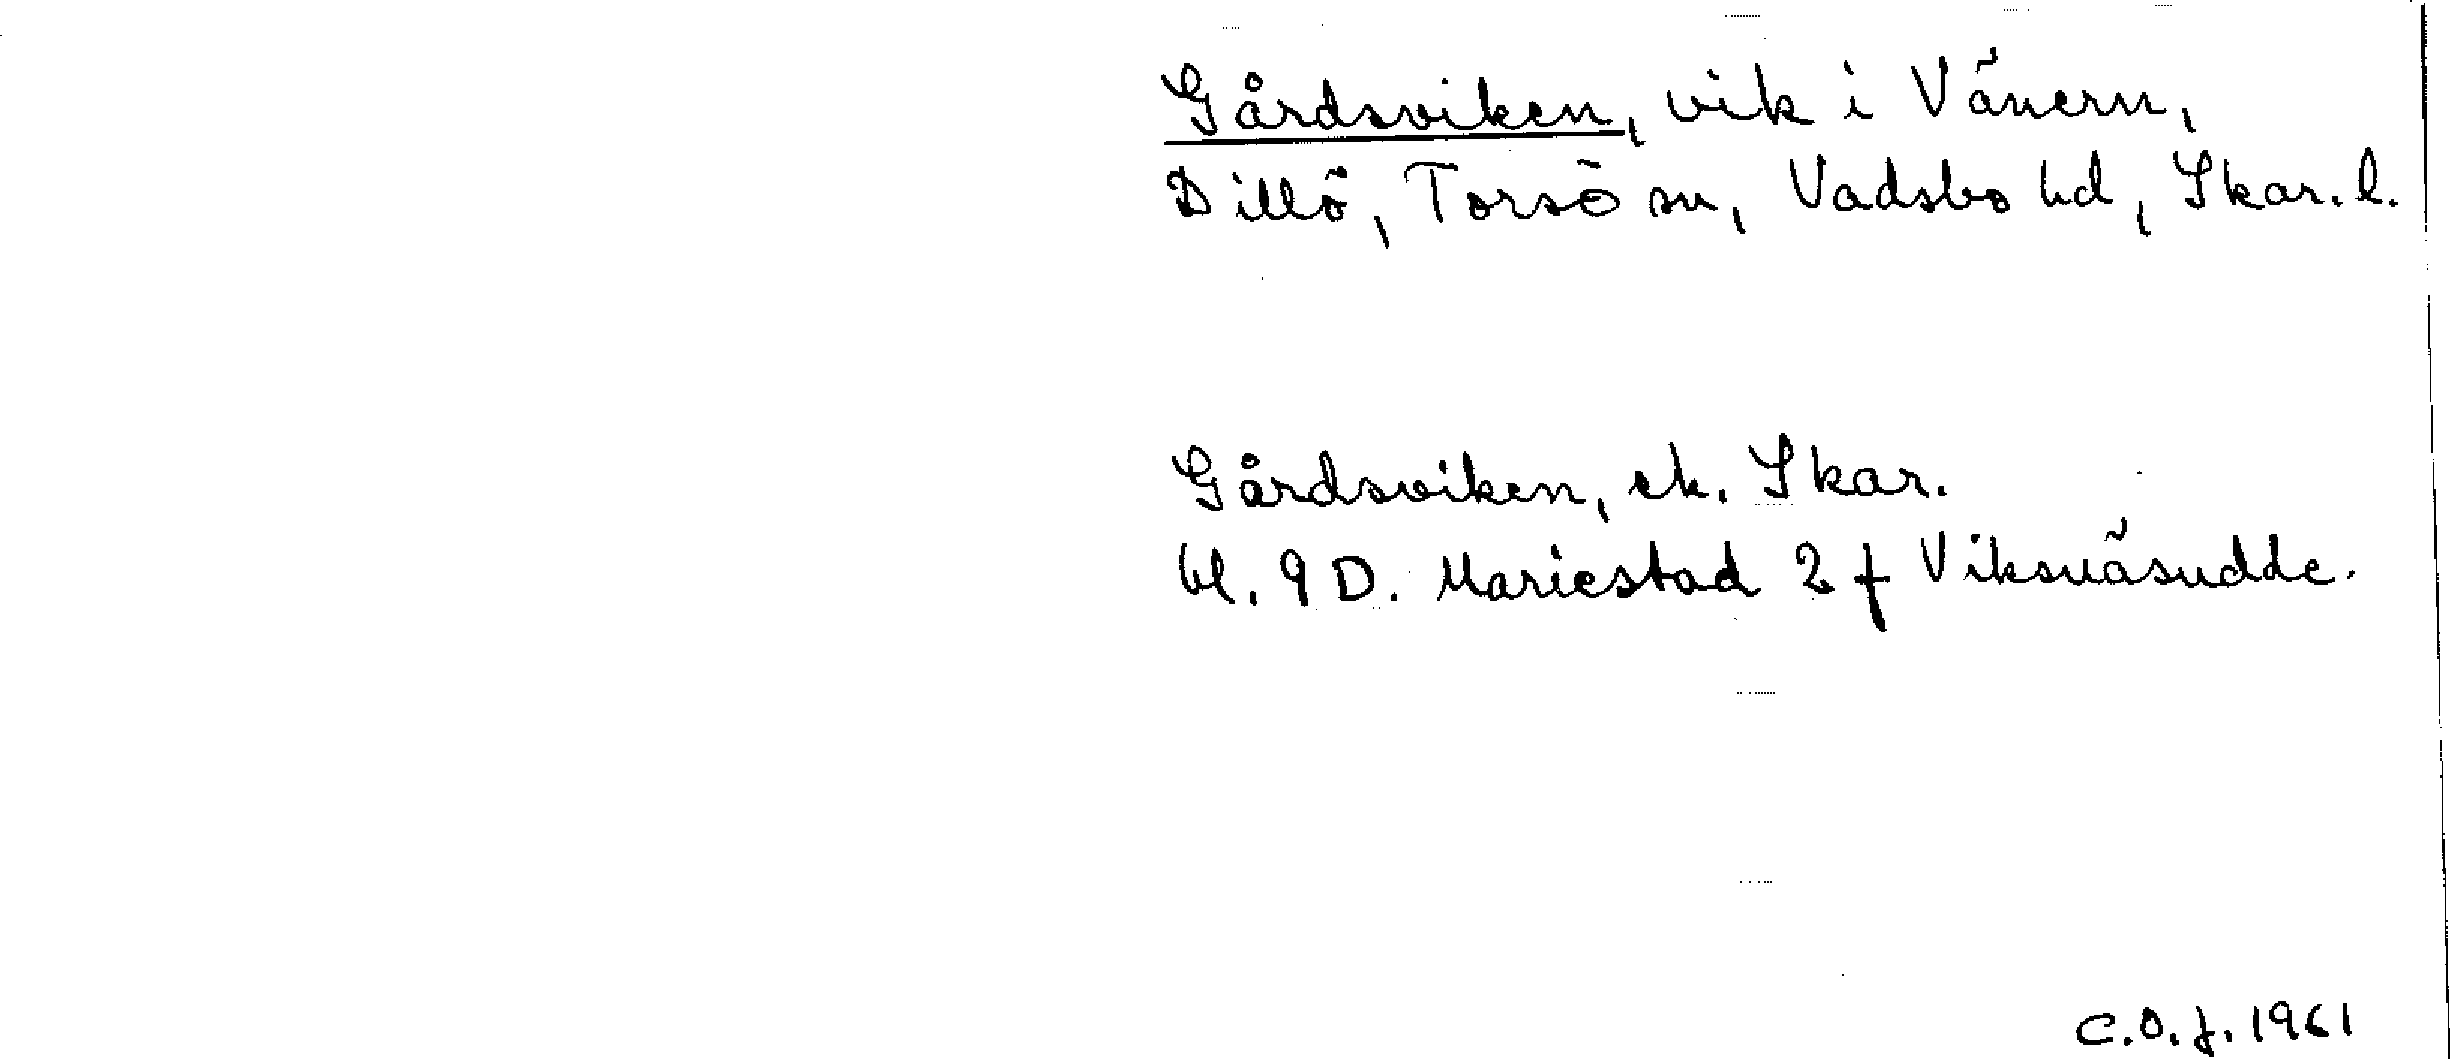 Gårdsviken, vik i Vänern,
Dillö, Torsö sn, Vadsbo hd, Skar. l.
Gårdsviken, ek. Skar.
bl. 9 D. Mariestad 2 f Viksnäsudde.
C.O.J. 1961